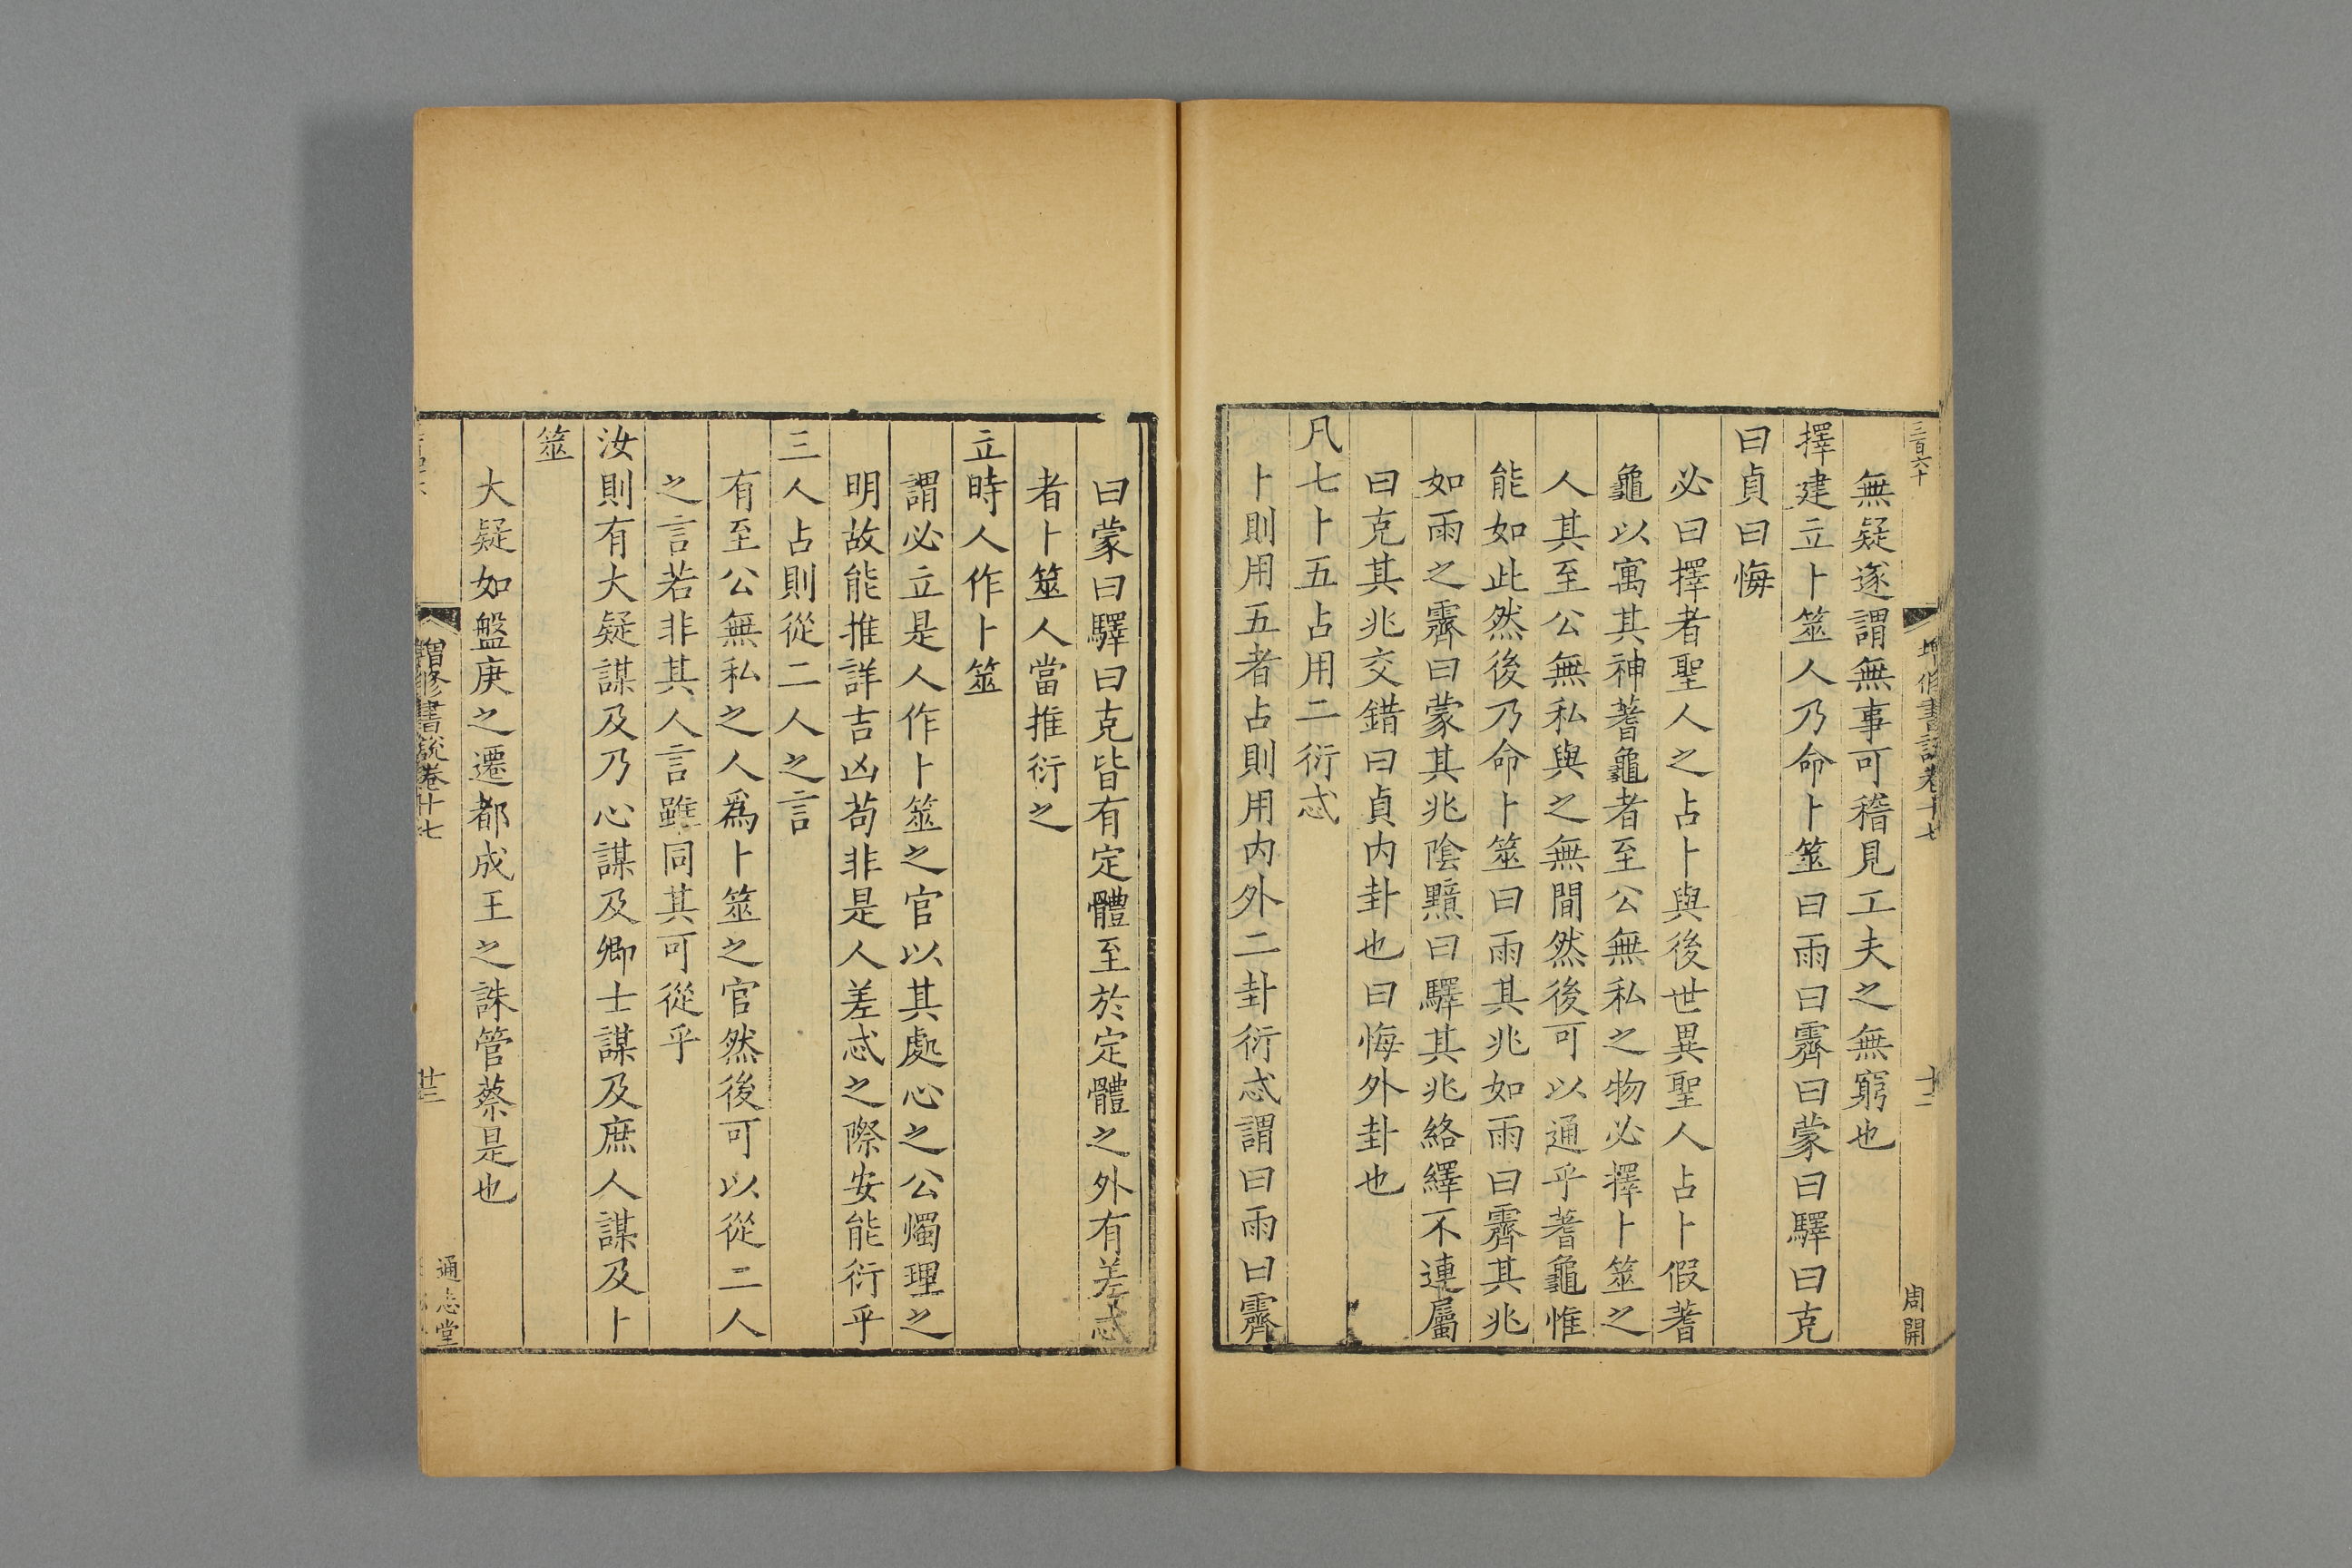 三百六十
無疑遂謂無事可稽見工夫之無窮也
擇建立卜筮人乃命卜筮曰雨曰霽曰蒙曰驛曰克
曰貞曰悔
必曰擇者聖人之占卜與後世異聖人占卜假蓍
龜以寓其神蓍龜者至公無私之物必擇卜筮之
人其至公無私與之無間然後可以通乎蓍龜惟
能如此然後乃命卜筮曰雨其兆如雨曰霽其兆
如雨之霽曰蒙其兆陰黯曰驛其兆絡繹不連屬
曰克其兆交錯曰貞内卦也曰悔外卦也
凡七卜五占用二衍忒
卜則用五者占則用内外二卦衍忒謂曰雨曰霽
周開
曰蒙曰驛曰克皆有定體至於定體之外有差忒
者卜筮人當推衍之
立時人作卜筮
謂必立是人作卜筮之官以其處心之公燭理之
明故能推詳吉凶茍非是人差忒之際安能衍乎
三人占則從二人之言
有至公無私之人爲卜筮之官然後可以從二人
之言若非其人言雖同其可從乎
汝則有大疑謀及乃心謀及卿士謀及庶人謀及卜
筮
大疑如盤庚之遷都成王之誅管蔡是也
增修書說卷廿七
廿三
通志堂